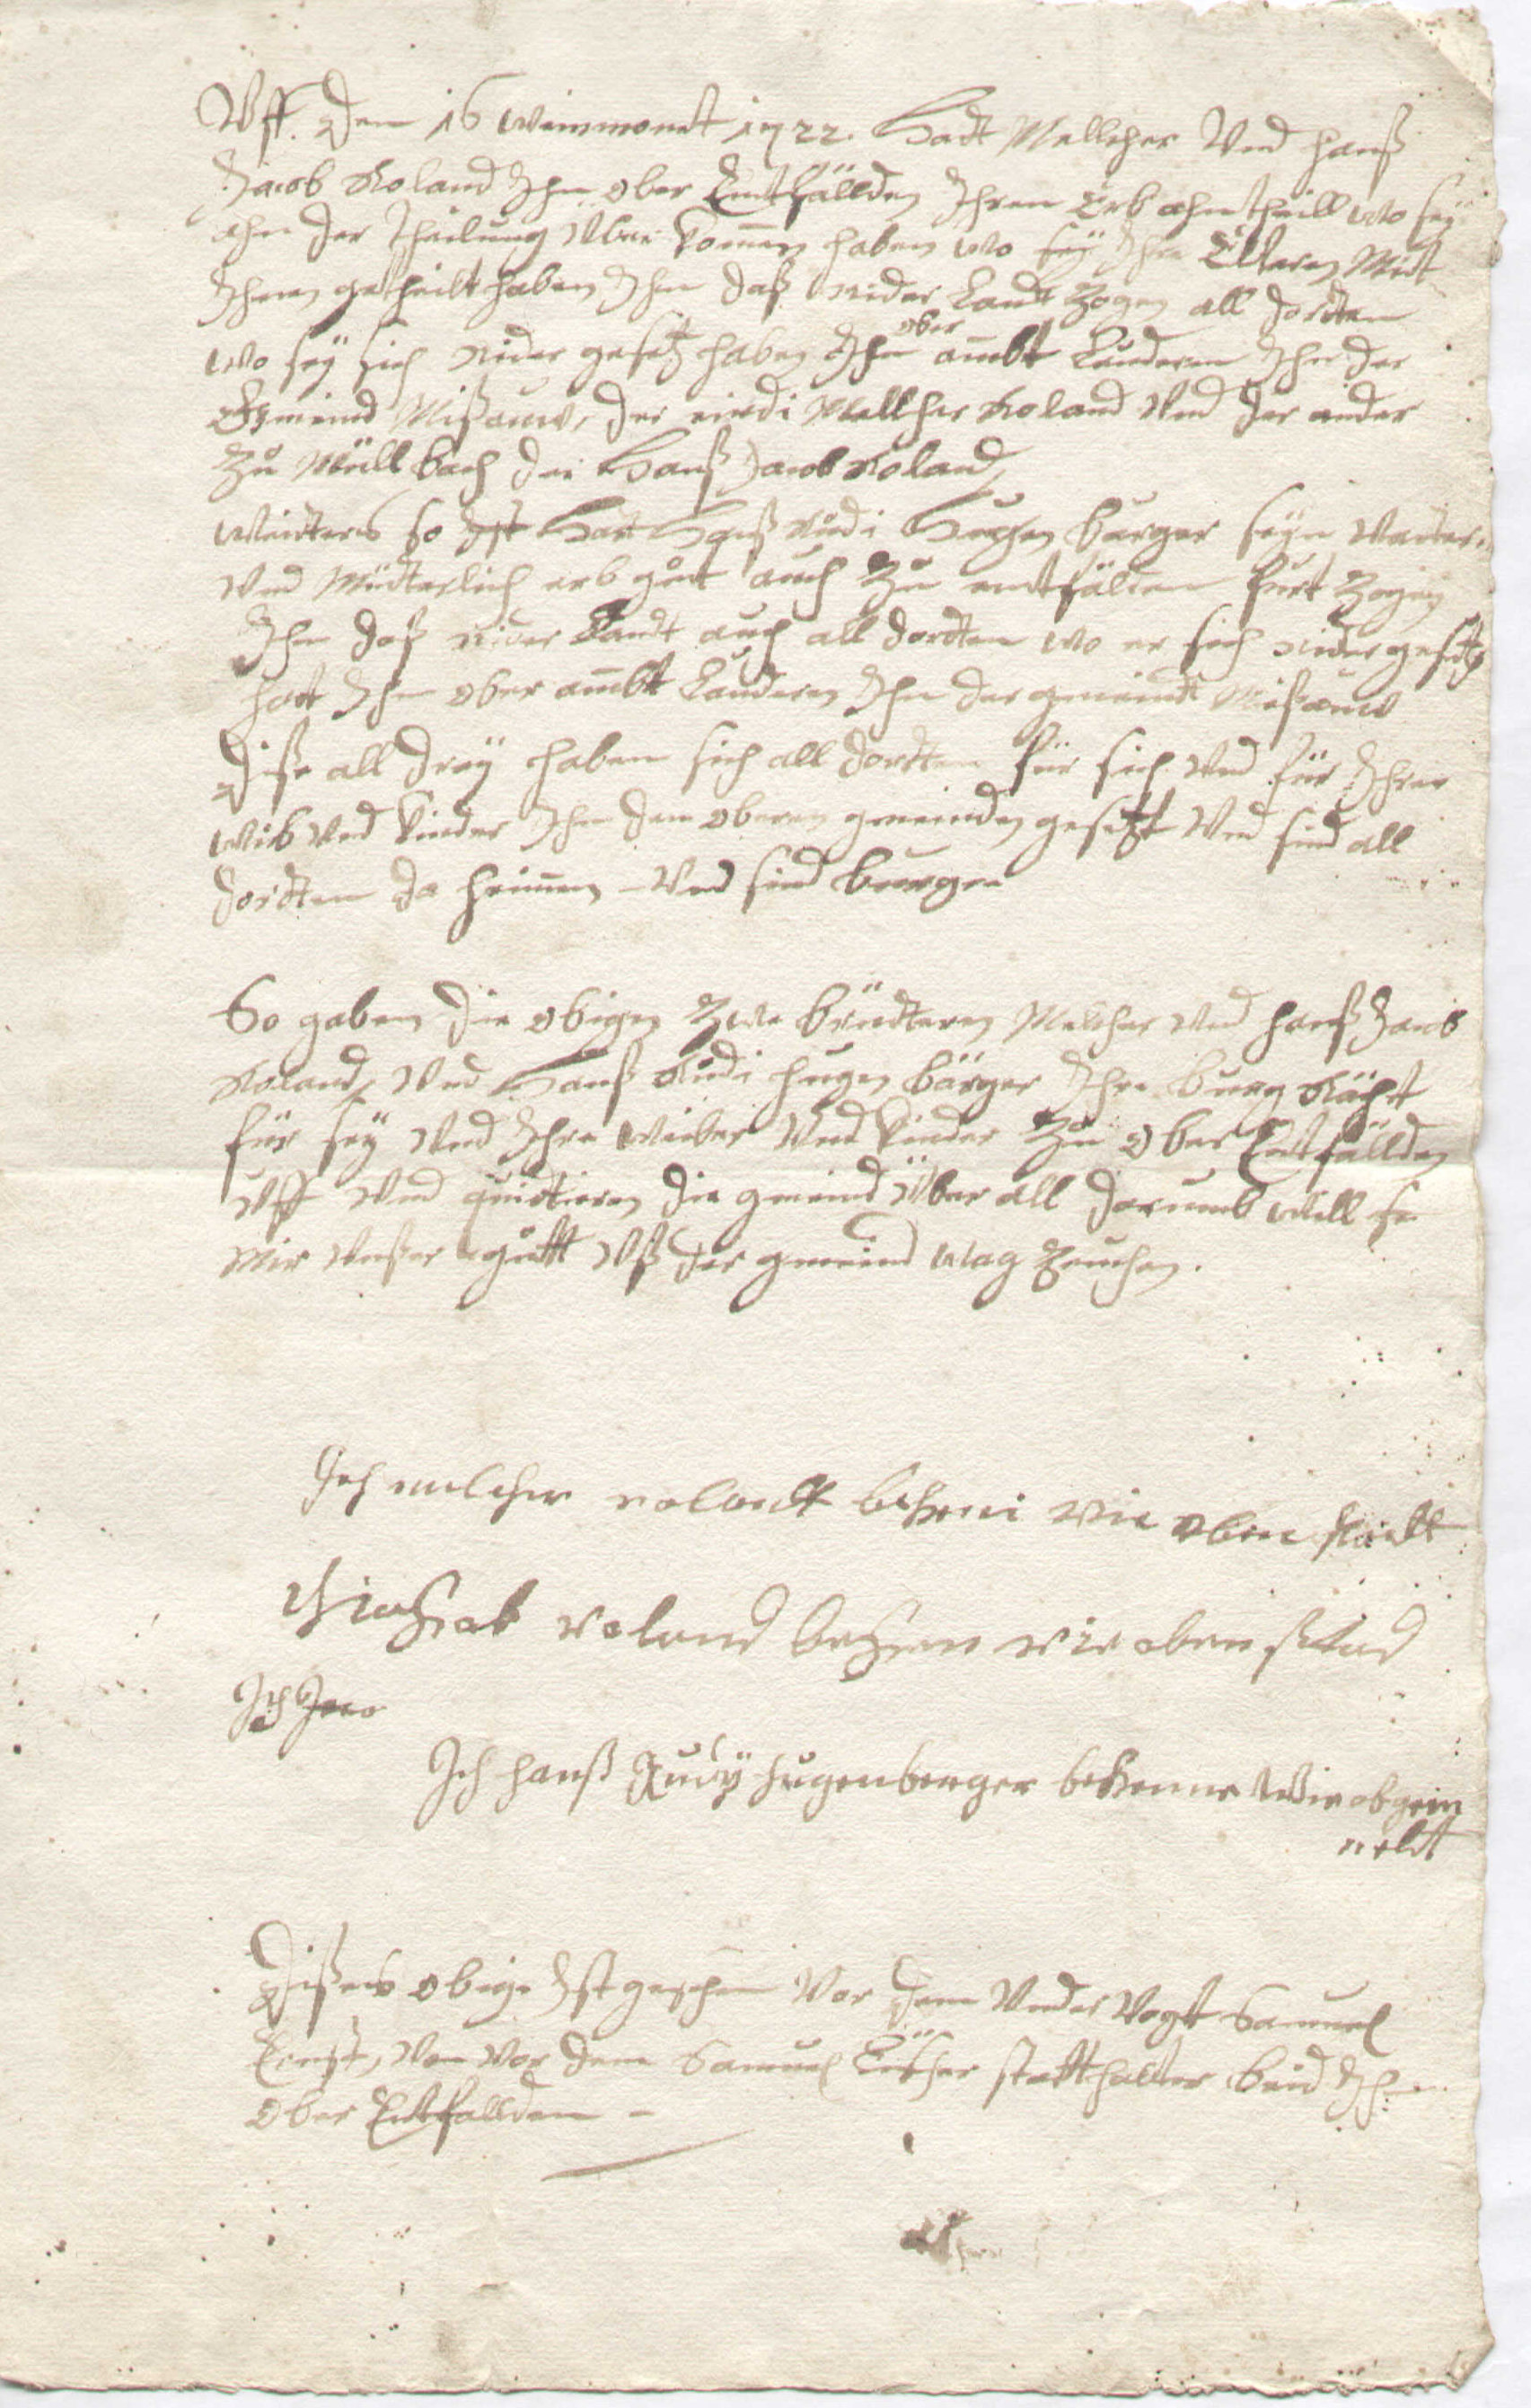 Uff. dem 16 weinmonet 1722. Hatt Mellcher Und hanß
Jacob Roland Jhn ober Entfällden Jhren Erb ahntheill wo sey
ahn der theilung über komen haben wo sey Jhre Elteren Mit
Jhnen getheilt haben Jhn daß nider Landt Zogen all dordten
wo sey sich nider gesetz haben Jhn ober ambt Lauderen Jhn der
Gemeind Mißauw, der eindi Mellcher Roland Und der ander
Zu Müllbach der Hanß Jacob Roland
Weidters so Jst Hatt Hanß Rudi Hugen burger seyn Vatter
Und Müdterlich erb gudt auch Zu entfälten furt Zogen
Jhn daß nider Landt auch all dordten wo er sich nider gesetz
hatt Jhn ober ambtt Lauderen Jhn der gmeindt Mißauw
Diße all drey haben sich all dordten für sich Und für Jhrer
wib Und kinder Jhn den oberen gmeinden gesetzt Und sind all
dordten da heimen Und sind burger
So gaben die obigen Zwe brüdteren Melcher Und hanß Jacob
Roland, Und Hanß Rudi hugen bürger Jhre burg Rächt
für sey Und Jhre weiber Und kinder Zu ober Entfällden
Uff Und quidtieren die gmeind über all darumb will se
Mir Unßer gutt Uß der gmeind wäg Zeuchen.
Jch melcher rolandt bekene wie oben stadt
roland bekenen wie oben stad
Jch
Jch hanß Rudy hugenberger bekenne Wie obgem
melt
Dißers obige Jst geschen Vor dem Under Vogt Samuel
Ernst, Un Vor dem Samuel Lüscher statthalter beid Jhn
Ober Entfallden